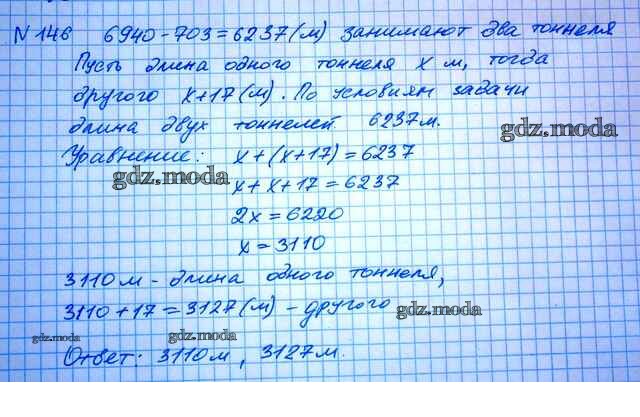 N 146 6940-703=6237(м) занимают два тоннеля
Пусть длина одного тоннеля x м, тогда
другого x+17(м). По условиям задачи
длина двух тоннелей 6237м.
gdz.moda
Уравнение: x+(x+17)=6237
gdz.moda
x+x+17=6237
2x=6220
x=3110
3110м - длина одного тоннеля,
3110+17=3127(м) - другого
gdz.moda
gdz.moda
gdz.moda
gdz.moda
Ответ: 3110м, 3127м.